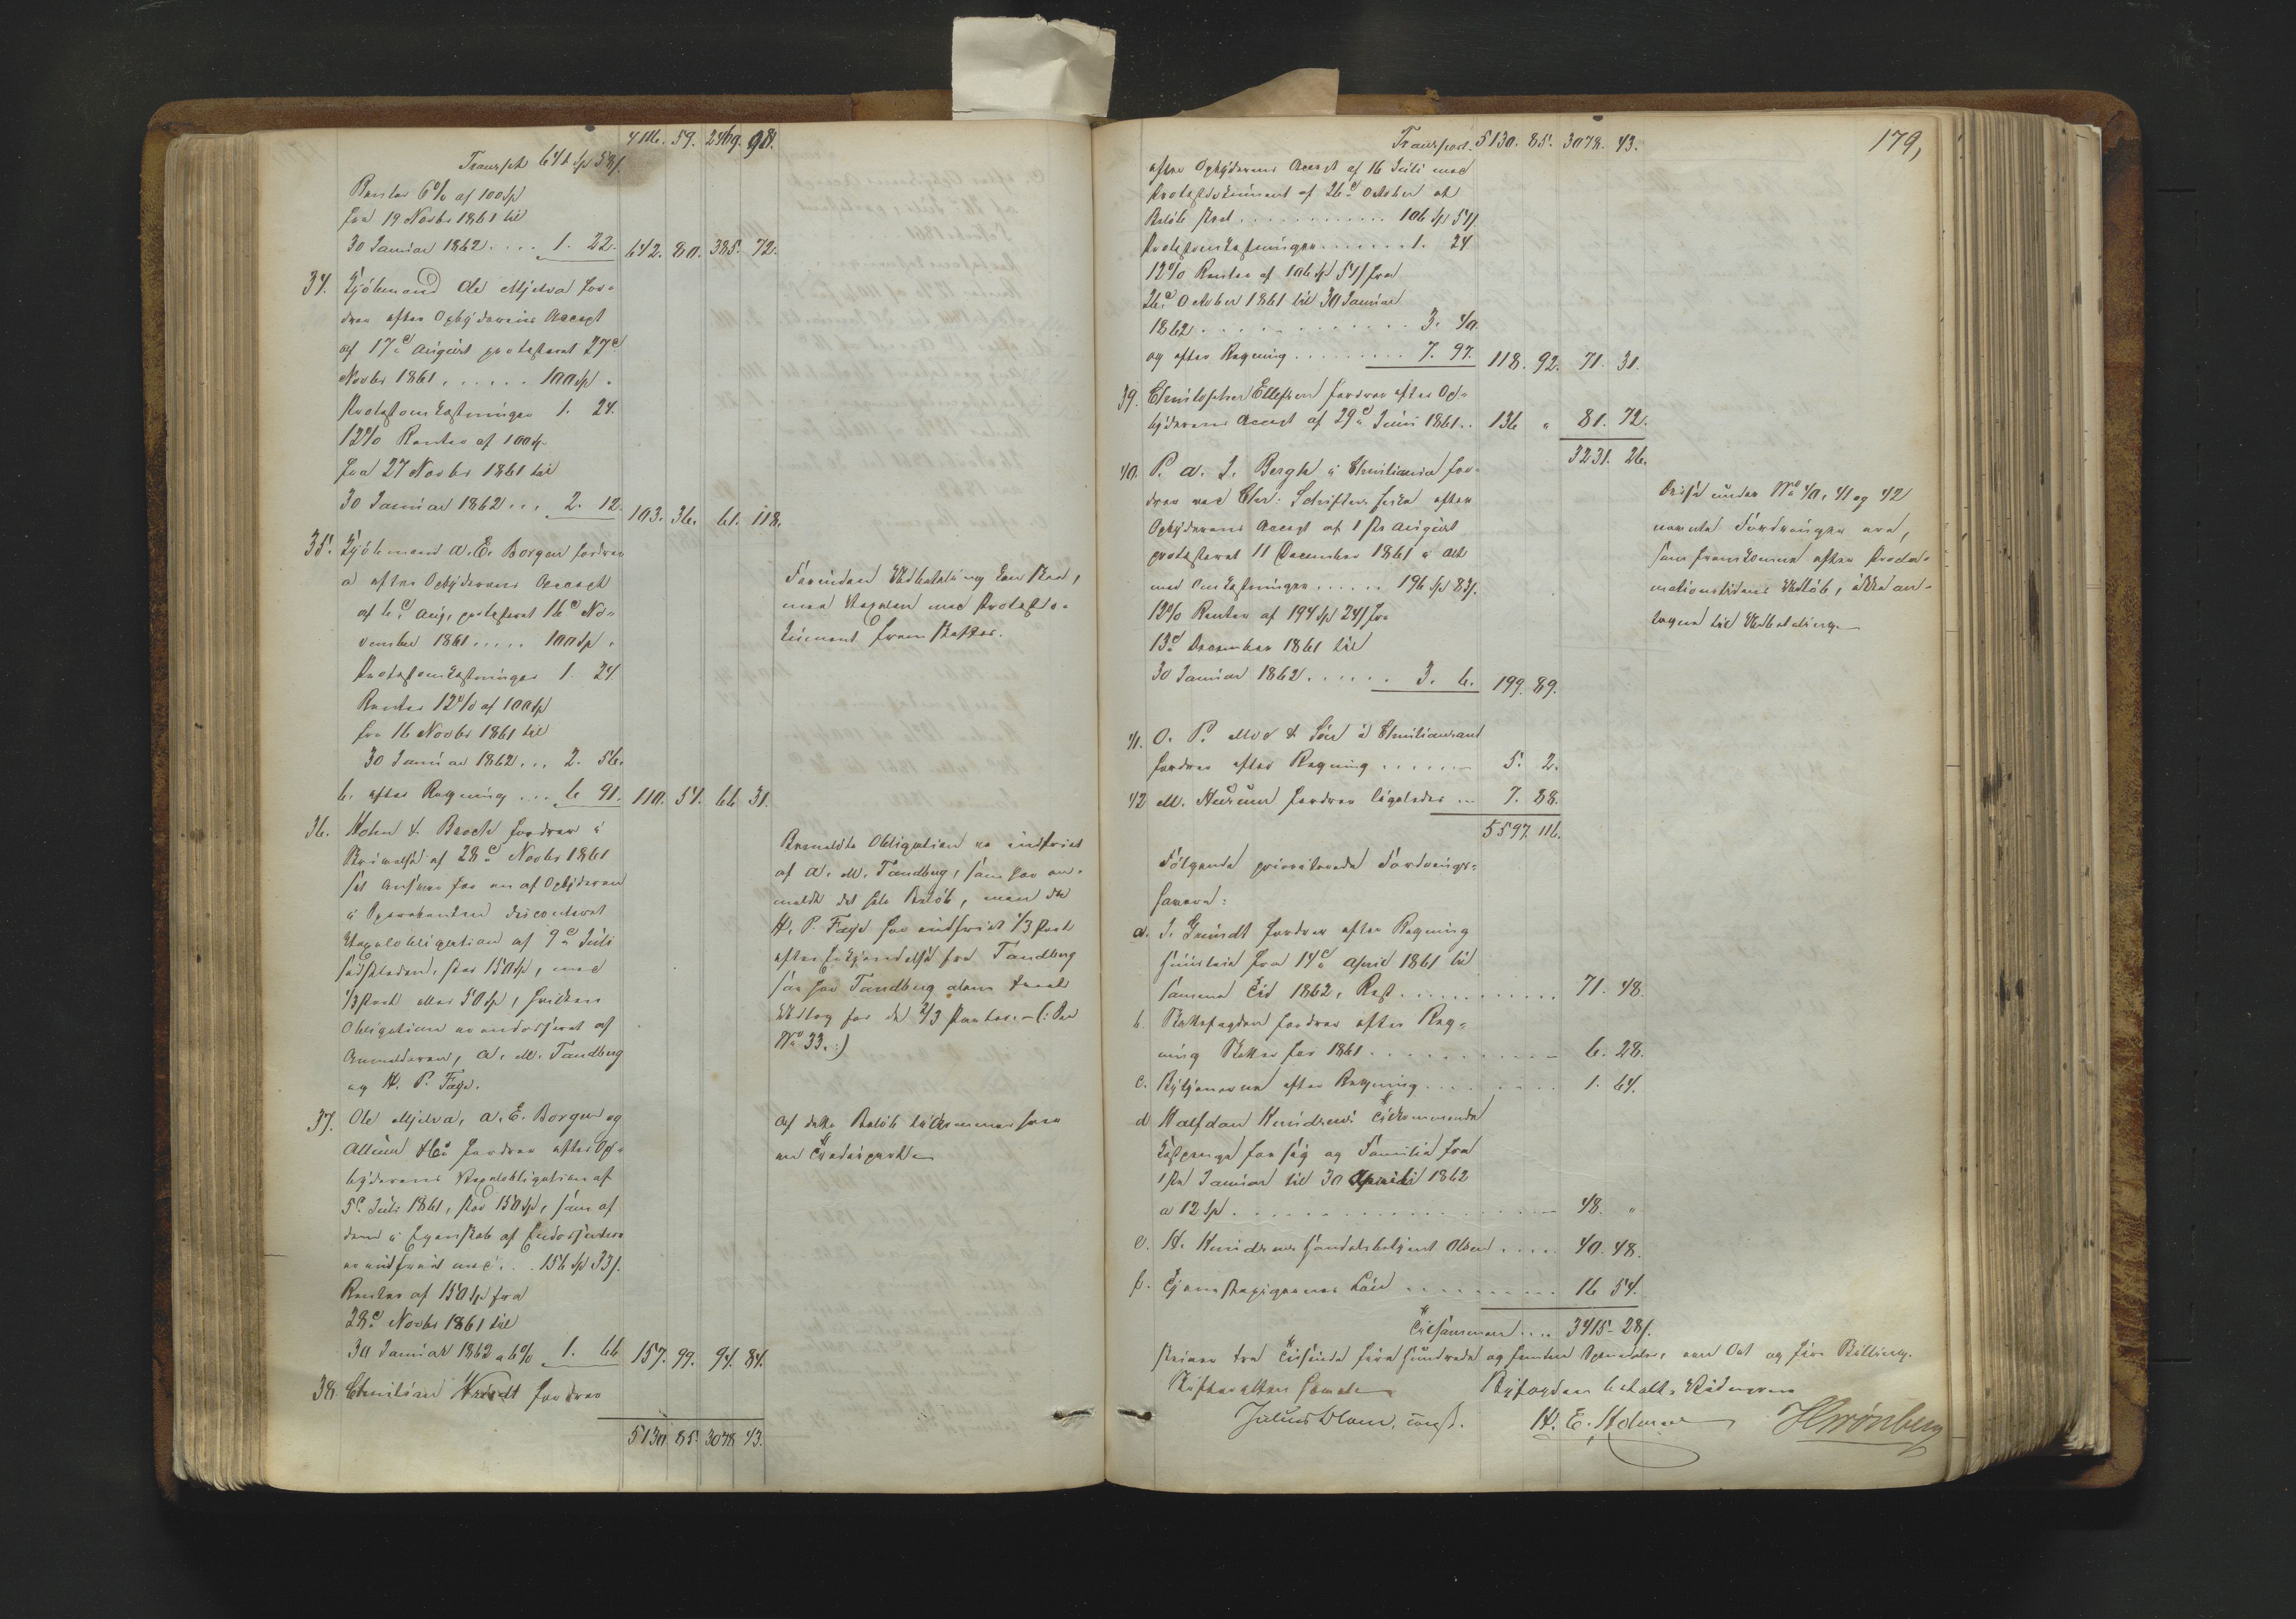 4116. 59. 2469. 98.
Transpt 641 Sp 58 ſ
Renter 6% af 100 Sp
fra 19 Novbr 1861 til
30 Januar 1862 .... 1. 22. 642. 80. 385. 72.
34. Kjøbmand Ole Mjelva for-
drer efter Opbyderens Accept
af 17de August protesteret 27de
Novbr 1861 ...... 100 Sp "
Protestomkostninger 1. 24.
12% Renter af 100 Sp
fra 27 Novbr 1861 til
30 Januar 1862 ... 2. 12. 103. 36. 61. 118.
35. Kjøbmand A. E. Borgen fordrer
a efter Opbyderens Accept
af 6te Aug. protesteret 16de No-
vember 1861 ..... 100 Sp "
Protestomkostninger 1. 24.
Renter 12% af 100 Sp
fra 16 Novbr 1861 til
30 Januar 1862 ... 2. 56.
b. efter Regning ... 6 91. 110. 51. 66 31.
Forinden Udbetaling kan skee,
maa Vexelen med Protestdo-
kument fremskaffes.
36. Holm & Broch fordrer i
Skrivelse af 28de Novbr 1861
sit Ansvar for en af Opbyderen
i Operabanken disconteret
Vexelobligation af 9de Juli
sidstleden, stor 150 Sp, med
1/3 Part eller 50 Sp, hvilken
Obligation er endosseret af
Anmelderen, A. M. Tandberg
og H. P. Faye.
Anmeldte Obligation er indfriet
af A. M. Tandberg, som har an-
meldt det hele Beløb, men da
H. P. Faye har indfriet 1/3 Part
efter Erkjendelse fra Tandberg
saa har Tandberg alene
Udlæg for de 2/3 Parter. – (: See
No 33. :)
37. Ole Mjelva, A. E. Borgen og
Allum & Co fordrer efter Op-
byderens Vexelobligation af
5te Juli 1861, stor 150 Sp, som af
dem i Egenskab af Endossenter
er indfriet med .. 156 Sp 33 ſ.
Renter af 150 Sp fra
28de Novbr 1861 til
30 Januar 1862 a 6% 1. 66 157. 99. 94. 84.
Af dette Beløb tilkommer hver
en Trediepart
38. Christian fordrer
5130 85. 3078 43.
179,
Transport. 5130. 85. 3078. 43.
efter Opbyderens Accept af 16 Juli med
Protestdokument af 26de October et
Beløb stort ............ 106 Sp 51 ſ
Protestomkostninger ....... 1. 24
12% Renter af 106 Sp 51 ſ fra
26de October 1861 til 30 Januar
1862 ............ 3. 40
og efter Regning ......... 7. 97. 118. 92. 71. 31.
39. Christopher Ellefsen fordrer efter Op-
byderens Accept af 29de Juni 1861 .. 136 " 81. 72.
3231. 26.
40. P. A. J. Bergh i Christiania for-
drer ved Chr: Schrifter efter
Opbyderens Accept af 1ste August
protesteret 11 December 1861
med Omkostninger ...... 196 Sp 83 ſ.
12% Renter af 194 Sp 24 ſ fra
13de December 1861 til
30 Januar 1862 ...... 3. 6. 199. 89.
Disse under No 40, 41 og 42
nævnte Fordringer ere,
som fremkomne efter Procla-
mationstidens Udløb, ikke an-
tagne til Udbetaling
41. O. P. Moe & Søn i Christianssand
fordrer efter Regning ...... 5. 2.
42 M. fordrer ligeledes ... 7. 88.
5597. 116.
Følgende prioriterede Fordrings-
havere:
a. J. Gründt fordrer efter Regning
Huusleie fra 14de April 1861 til
samme Tid 1862, Rest ........... 71. 48.
b. Skattefogden fordrer efter Reg-
ning Skatter for 1861 .......... 6. 28.
c. Bytjenerne efter Regning ........ 1. 64.
d Halfdan Knudsens tilkommende
Kostpenge for sig og Familie fra
1ste Januar til 30 April 1862
a 12 Sp .................. 48. "
e. H. Knudsens Handelsbetjent Olsen .... 40. 48.
f. Tjenestepigernes Løn ......... 16 54.
Tilsammen .... 3415 – 28 ſ.
skriver tre Tusinde fire Hundrede og femten Speciedaler,
Skifteretten Byfogden
Julius Blom, const. H. E. Holmer HKrønberg